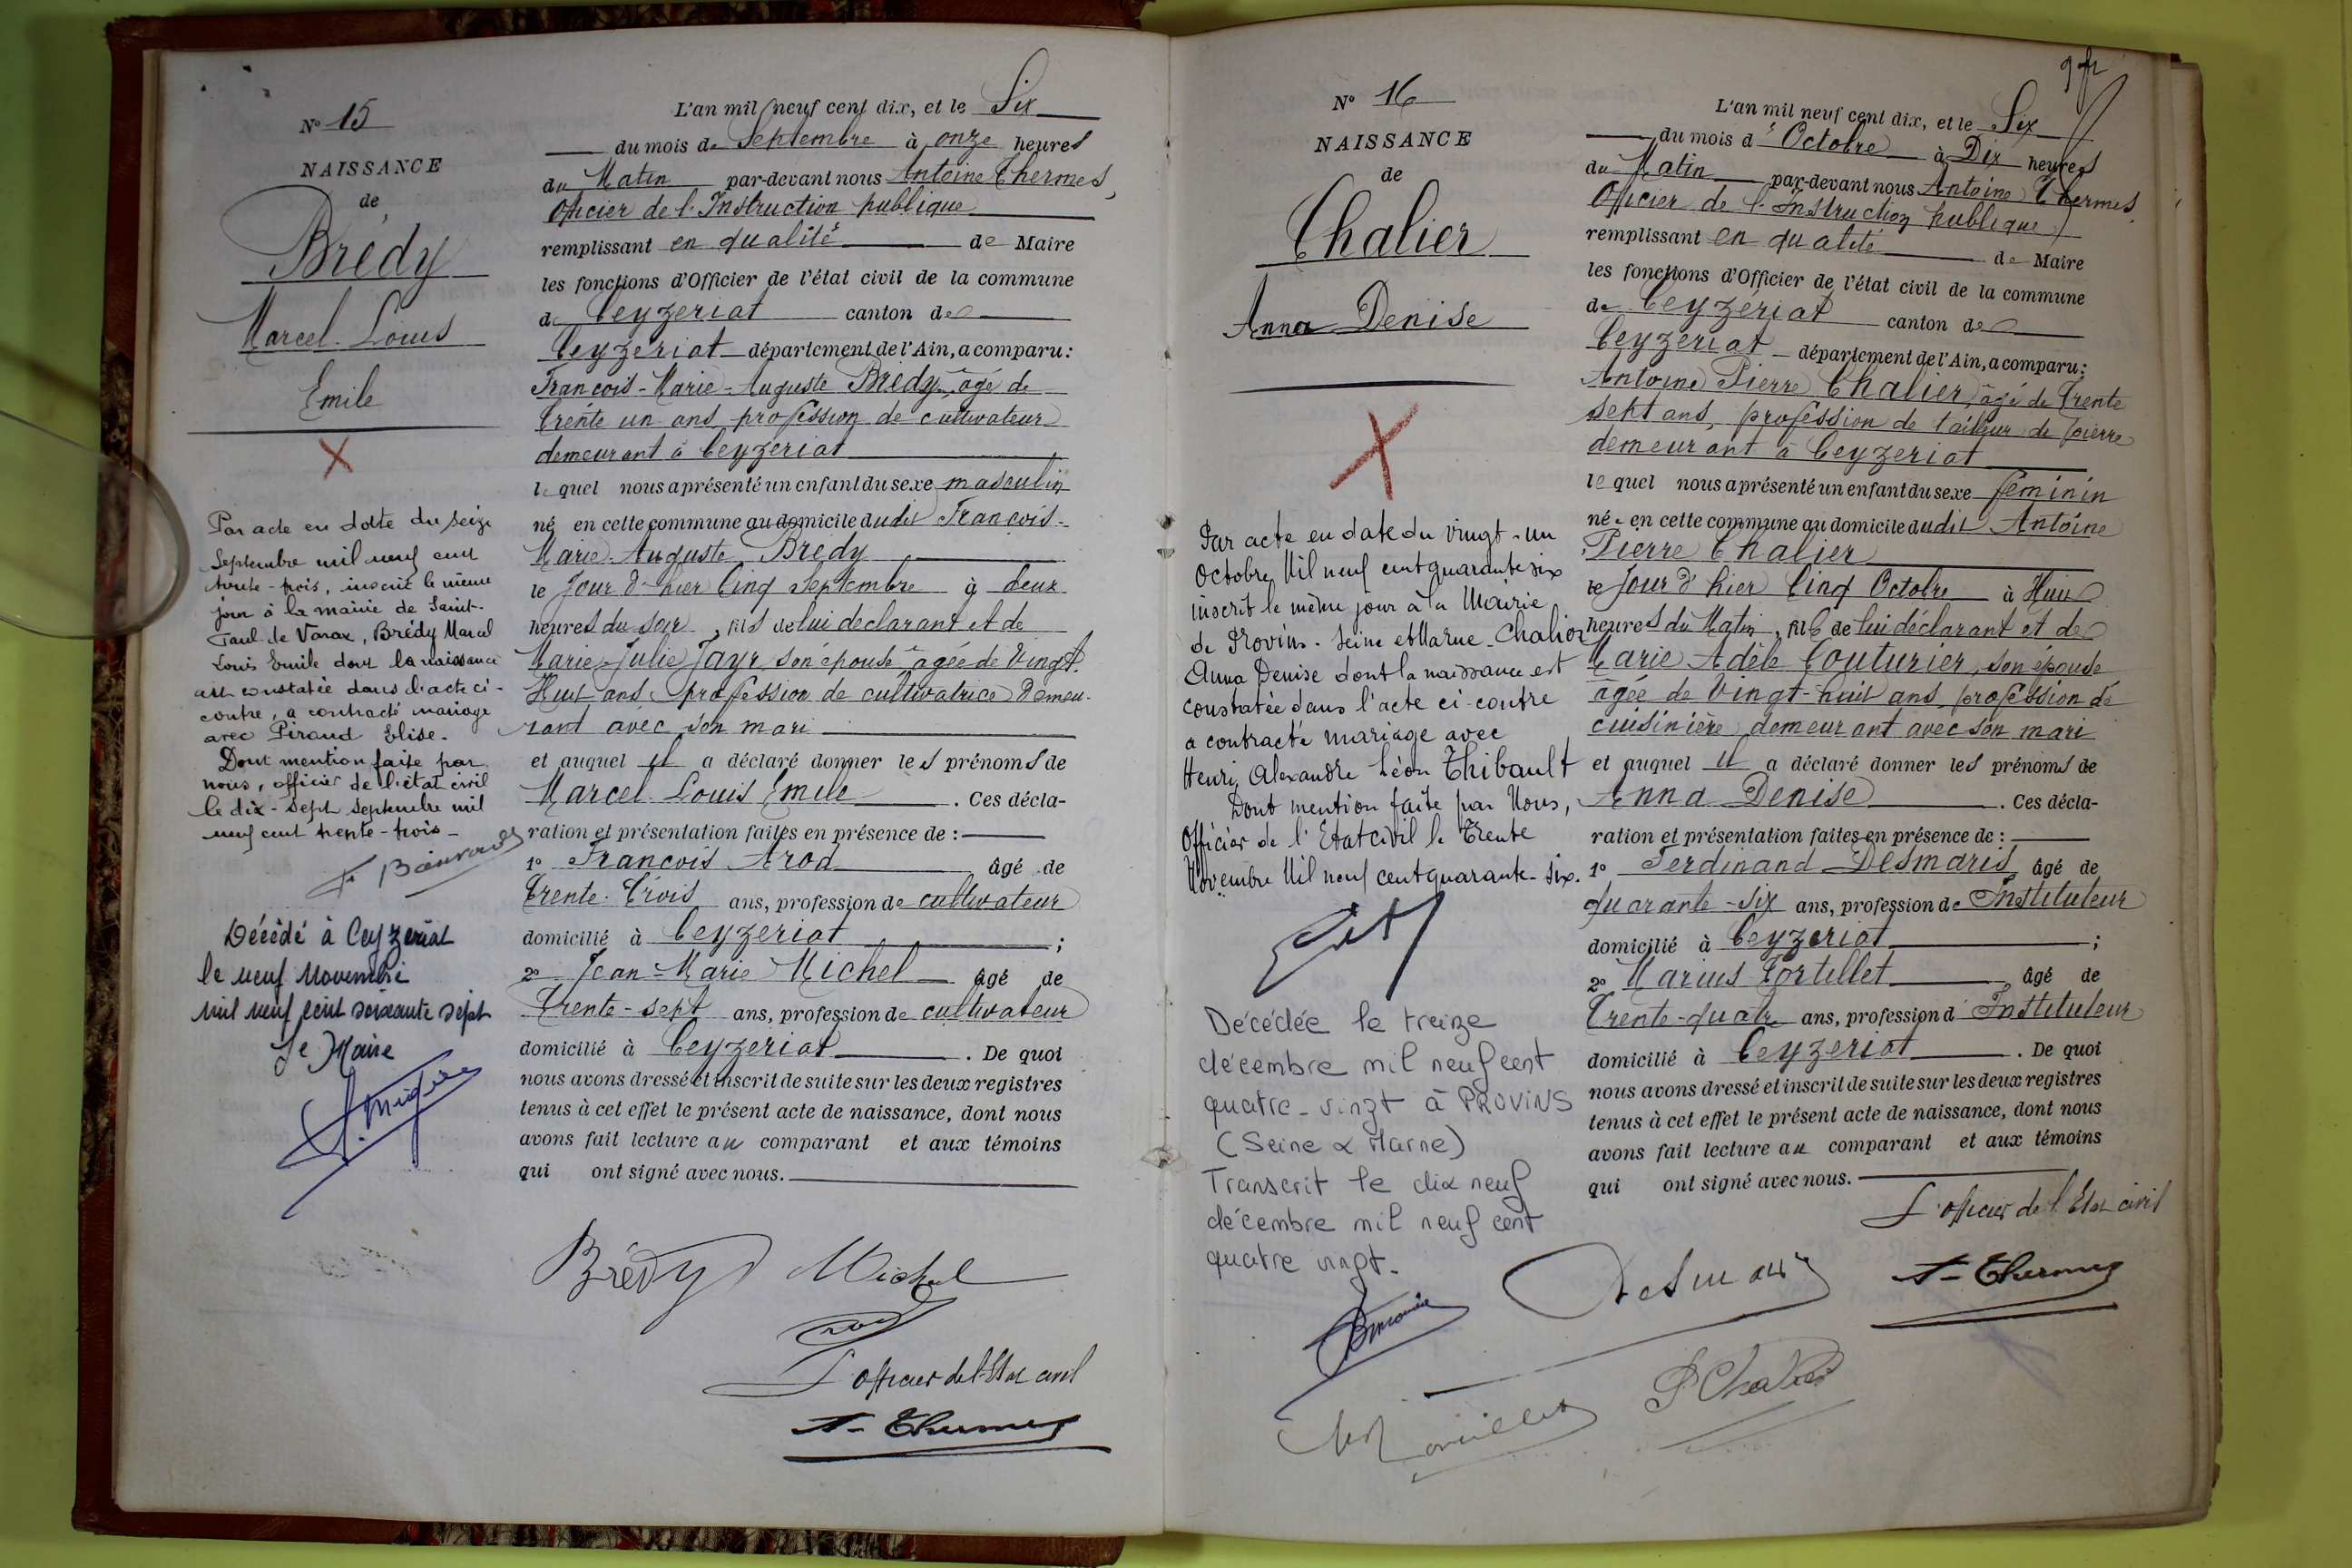 N° 15
NAISSANCE
de
Brédy
Marcel Louis
Emile
Par acte en date du seize
Septembre mil neuf cent
trente-trois, inscrit le même
jour à la mairie de Saint-
Paul-de Varax, Brédy Marcel
Louis Emile dont la naissance
est constatée dans l'acte ci-
contre, a contracté mariage
avec Piroud Elise.
Dont mention faite par
nous, officier de l'état civil
le dix-sept septembre mil
neuf cent trente-trois-
Décédé à Ceyzeriat
le neuf Novembre
mil neuf cent soixante sept
Le Maire
L'an mil neuf cent dix, et le Six
du mois de Septembre à onze heures
du Matin par-devant nous Antoine Thermes,
Officier de l'Instruction publique
remplissant en qualité de Maire
les fonctions d'Officier de l'état civil de la commune
de Ceyzeriat canton de
Ceyzeriat département de l'Ain, a comparu:
François-Marie-Auguste Brédy, âgé de
trente un ans profession de cultivateur
demeurant à Ceyzériat
lequel nous a présenté un enfant du sexe masculin
né en cette commune au domicile dudit François-
Marie-Auguste Brédy
le Jour d'hier Cinq Septembre à deux
heures du soir, fils de lui déclarant et de
Marie-Julie Jayr son épouse âgée de Vingt-
Huit ans profession de cultivatrice demeu-
rant avec son mari
et auquel il a déclaré donner les prénoms de
Marcel Louis Emile . Ces décla-
ration et présentation faites en présence de :
1° François Arod âgé de
Trente-Trois ans, profession de cultivateur
domicilié à Ceyzeriat ;
2° Jean-Marie Michel âgé de
Trente-sept ans, profession de cultivateur
domicilié à Ceyzeriat . De quoi
nous avons dressé et inscrit de suite sur les deux registres
tenus à cet effet le présent acte de naissance, dont nous
avons fait lecture au comparant et aux témoins
qui ont signé avec nous.
Brédy Michel
Arod
L'officier de l'Etat civil
A- Thermes
N° 16
NAISSANCE
de
Chalier
Anna Denise
Par acte en date du vingt-un
Octobre Mil neuf cent quarante six
inscrit le même jour à la Mairie
de Provins. Seine et Marne. Chalier
Anna Denise dont la naissance est
constatée dans l'acte ci-contre
a contracté mariage avec
Henri, Alexandre Léon Thibault
Dont mention faite par Nous,
Officier de l'Etat civil le Trente
Novembre Mil neuf cent quarante-six.
Décédée le treize
décembre mil neuf cent
quatre-vingt à PROVINS
(Seine & Marne)
Transcrit le dix neuf
décembre mil neuf cent
quatre vingt.
L'an mil neuf cent dix, et le Six
du mois d'Octobre à Dix heures
du Matin par-devant nous Antoine Thermes,
Officier de l'Instruction publique
remplissant en qualité de Maire
les fonctions d'Officier de l'état civil de la commune
de Ceyzeriat canton de
Ceyzeriat département de l'Ain, a comparu:
Antoine Pierre Chalier âgé de Trente
sept ans, profession de tailleur de pierre
demeurant à Ceyzeriat
lequel nous a présenté un enfant du sexe féminin
née en cette commune au domicile dudit Antoine
Pierre Chalier
le Jour d'hier Cinq Octobre à Huit
heures du Matin, fille de lui déclarant et de
Marie Adèle Couturier, son épouse
âgée de Vingt-huit ans, profession de
cuisinière demeurant avec son mari
et auquel il a déclaré donner les prénoms de
Anna Denise . Ces décla-
ration et présentation faites en présence de :
1° Ferdinand Desmaris âgé de
quarante-six ans, profession de Instituteur
domicilié à Ceyzeriat ;
2° Marius Tortillet âgé de
Trente-quatre ans, profession d'Instituteur
domicilié à Ceyzeriat . De quoi
nous avons dressé et inscrit de suite sur les deux registres
tenus à cet effet le présent acte de naissance, dont nous
avons fait lecture au comparant et aux témoins
qui ont signé avec nous.
L'officier de l'Etat civil
Desmaris
A- Thermes
P Chalier